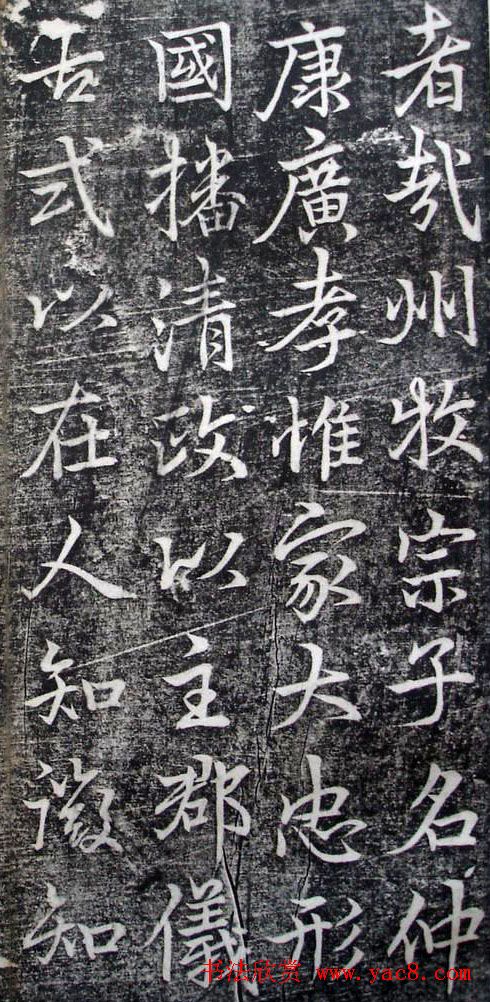 者哉州牧宗子名仲
康廣孝惟家大忠形
國播清政以主郡儀
古式以在人知微知
书法欣赏 www.yac8.com